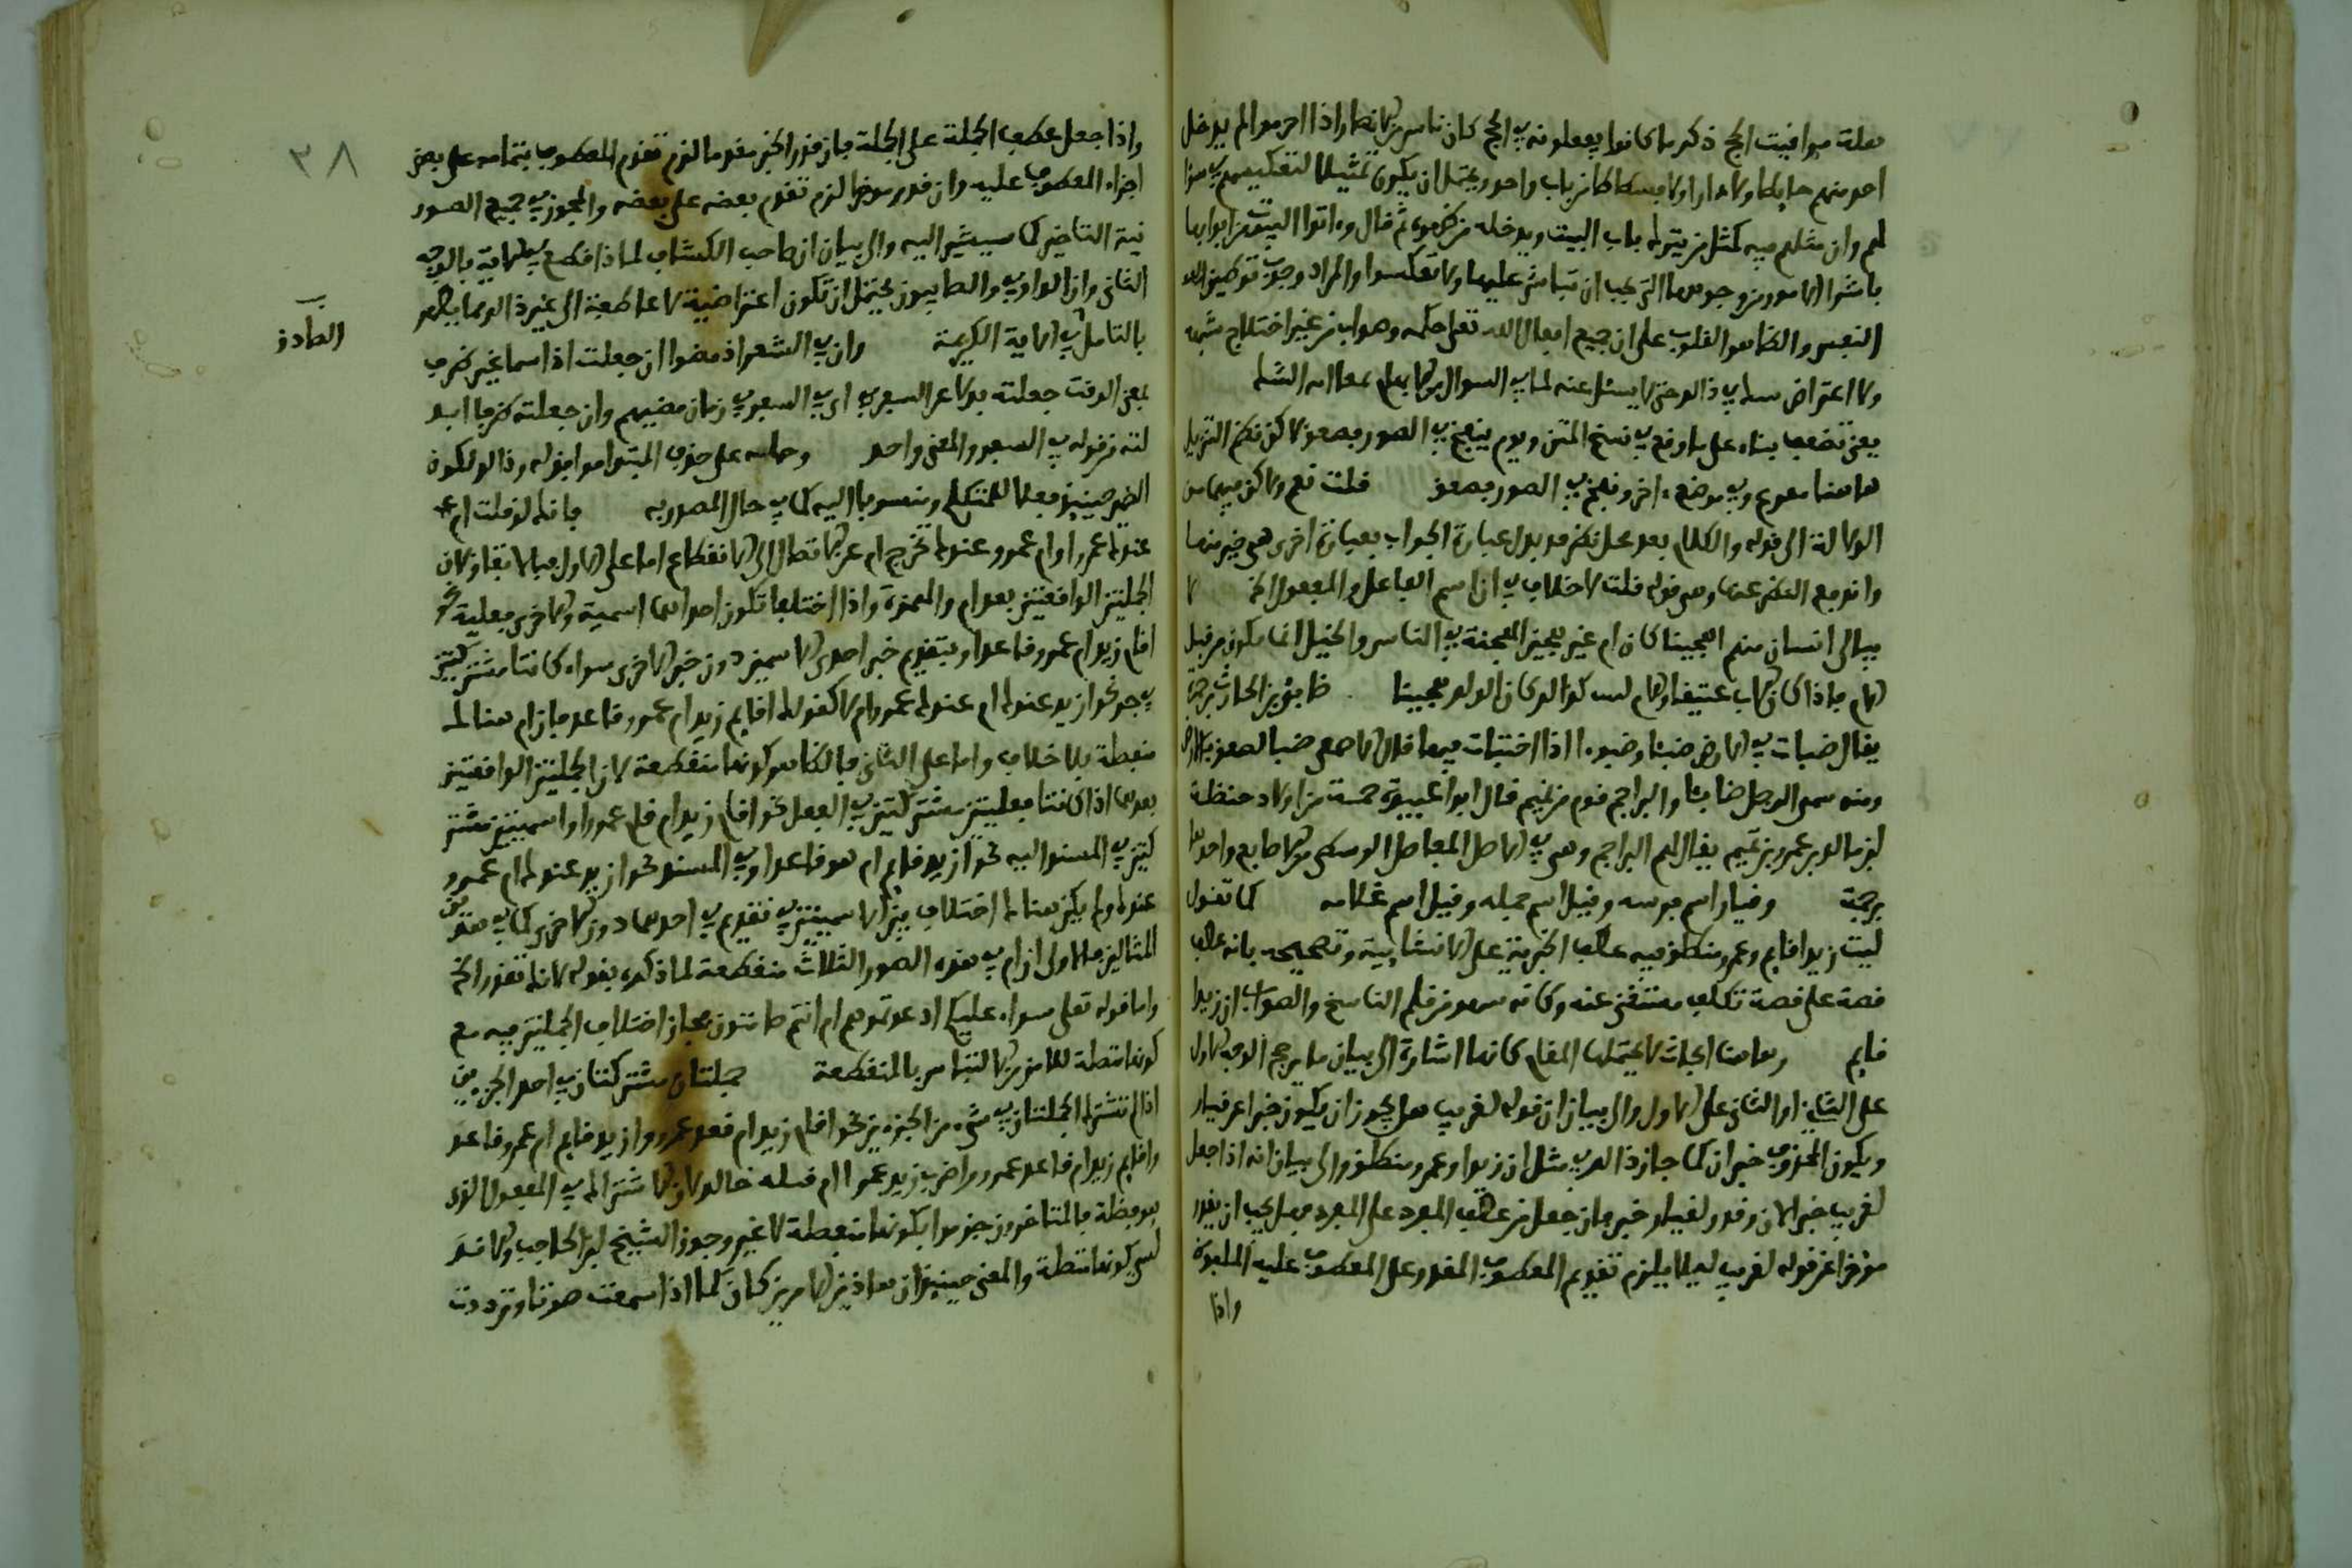 معلة مواقيت الحج ذكر ما كانوا يفعلونه في الحج كان ناس من الانصار اذا احرموا لم يدخل
احد منهم حايطا ولا دارا ولا فسطاطا من باب واحد ويحتمل ان يكون تمثيلا لتعكيسهم في سؤا
لهم وان مثلهم فيه كمثل من يترك باب البيت ويدخله من ظهره ثم قال واتوا البيوت من ابوابها
باشروا الامور من وجوهها التي يجب ان تباشر عليها ولا تعكسوا والمراد وجوب توطين
النفس والقلوب على ان جميع افعال الله تعلى حكمة وصواب من غير اختلاج شبهة
ولا اعتراض في ذالك حتى لا يسئل عنه لما في السوال من الايهام
يعني تضعف بناء على ما وقع في نسخ المتن ويوم ينفخ في الصور فصعق لاكن نظم التنزيل
هاهنا ففزع وفي موضع اخر ونفخ في الصور فصعق قلت نعم ولاكن فيهما من
الدلالة الى قوله والكلام بعد محل نظر قد بدل عبارة الجواب بعبارة اخرى هي خير منها
وقع النظر عنها وهي قوله قلت لا خلاف في ان اسم الفاعل والمفعول الخ لا
يبالي انسان منهم اهجينا كان ام غير هجين الهجنة في الناس والخيل انما تكون من قبل
الام فاذا كان الاب عتيقا والام ليست كذالك كان الولد هجينا ضابئ بن الحارث البرجمي
يقال ضبات في الارض ضبئا وضبوءا اذا اختبات فيها قال الاصمعي ضبا لصق بالارض
ومنه سمى الرجل ضابئا والبراجم قوم من تميم قال ابو عبيدة خمسة من اولاد حنظلة
بن مالك بن عمرو بن تميم يقال لهم البراجم وهي في الاصل المفاصل الوسطى من الاصابع واحدها
برجمة وقيار اسم فرسه وقيل اسم جمله وقيل اسم غلامه كما تقول
ليت زيدا قايم وعمرو منطلق فيه عطف الخبرية على الانشايية وتصحيحه بانه عطف
قصة على قصة تكلف مستغنى عنه وكانه سهو من قلم الناسخ والصواب ان زيدا
قايم وهاهنا ابحاث لا يحتملها المقام كانها اشارة الى بيان ما يرجح الوجه الاول
على الثاني او الثاني على الاول والى بيان ان قوله لغريب هل يجوز ان يكون خبرا عن قيار
ويكون المحذوف خبر ان كما جاز ذالك في مثل ان زيدا وعمرو منطلق والى بيان انه اذا جعل
لغريب خبر الان وقدر لقيار خبر فان جعل من عطف المفرد على المفرد فهل يجب ان يقدر
مؤخرا عن قوله لغريب ليلا يلزم تقديم المعطوف المقدر على المعطوف عليه الملفوظ
واذا
٣٨
واذا جعل عطف الجملة على الجملة فان قدر الخبر مقدما لزم تقديم المعطوف بتمامه على بعض
اجزاء المعطوف عليه وان قدر موخرا لزم تقديم بعضه على بعضه والمجوز في جميع الصور
نية التاخير كما سيشير اليه والى بيان ان صاحب الكشاف لماذا قطع في الاية بالوجه
الثاني وان الواو في والصابيون يحتمل ان تكون اعتراضية لا عاطفة الى غير ذالك مما يظهر
بالتامل في الاية الكريمة وان في السفر اذ مضوا ان جعلت اذ اسما غير ظرف
بمعنى الوقت جعلته بدلا عن السفر اي في السفر في زمان مضيهم وان جعلته ظرفا ابد
لته من قوله في السفر والمعنى واحد وحمله على حذف المبتدا موافق له وذالك لكون
الصبر حينئذ فعلا للمتكلم ومنسوبا اليه كما في حال المصدرية فانك لو قلت ام
عندك عمرو او ام عمرو عندك تخرج ام عن الاتصال الى الانقطاع اما على الاول فبالاتفاق لان
الجملتين الواقعتين بعد ام والهمزة اذا اختلفا تكون احداهما اسمية والاخرى فعلية نحو
اقام زيد ام عمرو قاعد او بتقديم خبر احدى الاسميتين دون خبر الاخرى سواء كانتا مشتركتين
في جزء نحو ازيد عندك ام عندك عمرو ام لا كقولك اقايم زيد ام عمرو قاعد فان ام هنالك
منقطعة بلا خلاف واما على الثاني فالظاهر كونها منقطعة لان الجملتين الواقعتين
بعدها اذا كانتا فعليتين مشتركتين في الفعل نحو اقام زيد ام قام عمرو او اسميتين مشتر
كتين في المسند اليه نحو ازيد قايم ام هو قاعد او في المسند نحو ازيد عندك ام عمرو
عندك ولم يكن هنالك اختلاف بين الاسميتين في تقديم في احدهما دون الاخرى كما في هذين
المثالين فالاولى ان ام في هذه الصور الثلاث منقطعة لما ذكره بقوله لانك تقدر الخ
واما قوله تعلى سواء عليكم ادعوتموهم ام انتم صامتون فجاز اختلاف الجملتين فيه مع
كونها متصلة للامن من الالتباس بالمنقطعة جملتان مشتركتان في احد الجزءين
اذا لم تشترك الجملتان في شيء من الجزءين نحو اقام زيد ام قعد عمرو وازيد قايم ام عمرو قاعد
واقايم زيد ام قاعد عمرو واضرب زيد عمرا ام قتله خالد لان الاشتراك في المفعول الذي
هو فضلة فالمتاخرون جزموا بكونها منقطعة لا غير وجوز الشيخ ابن الحاجب والاندلسي
كونها متصلة والمعنى حينئذ ان هاذين الامرين كان كما اذا سمعت صوتا وترددت